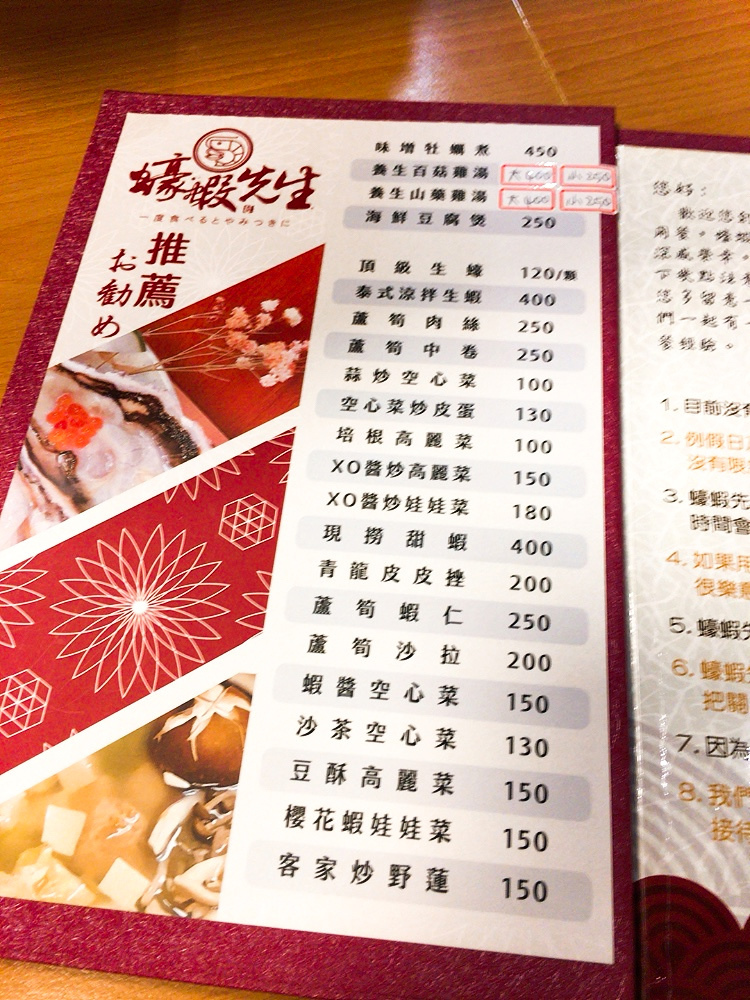 蠔蝦先生
一度食べるとやみつきに
推薦
お勧め
味增牡蠣煮 450
養生百菇雞湯 大400 小250
養生山藥雞湯 大400 小250
海鮮豆腐煲 250
頂級生蠔 120/顆
泰式涼拌生蝦 400
蘆筍肉絲 250
蘆筍中卷 250
蒜炒空心菜 100
空心菜炒皮蛋 130
培根高麗菜 100
XO醬炒高麗菜 150
XO醬炒娃娃菜 180
現撈甜蝦 400
青龍皮皮挫 200
蘆筍蝦仁 250
蘆筍沙拉 200
蝦醬空心菜 150
沙茶空心菜 130
豆酥高麗菜 150
櫻花蝦娃娃菜 150
客家炒野蓮 150
您好：
歡迎您到
用餐。蠔蝦
深感榮幸。
下幾點注
您多留意
們一起有
餐經驗。
1. 目前沒
2. 例假日
沒有
3. 蠔蝦先
時間會
4. 如果用
很樂
5. 蠔蝦先
6. 蠔蝦
把關
7. 因為
8. 我們
接待